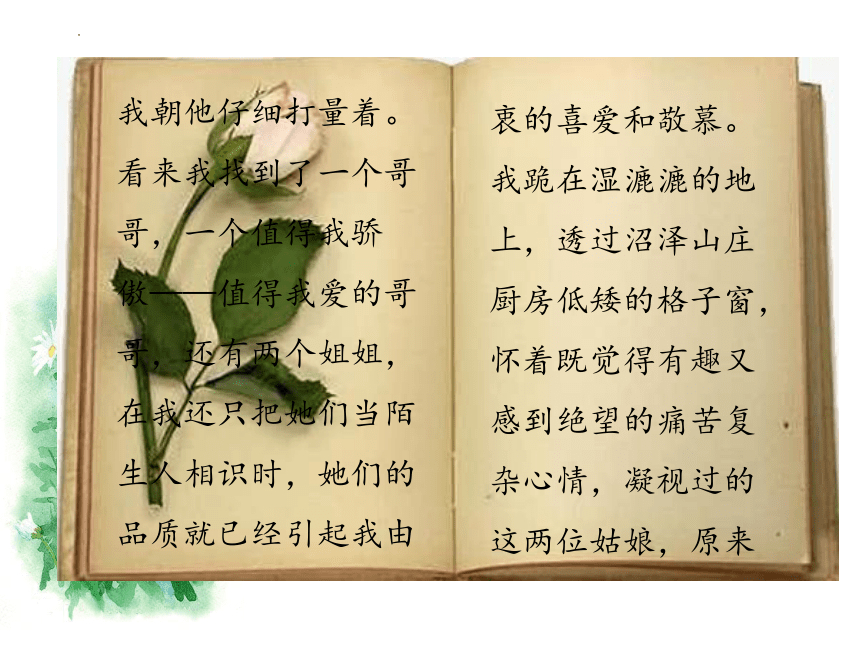 我朝他仔细打量着。
看来我找到了一个哥
哥，一个值得我骄
傲——值得我爱的哥
哥，还有两个姐姐，
在我还只把她们当陌
生人相识时，她们的
品质就已经引起我由
衷的喜爱和敬慕。
我跪在湿漉漉的地
上，透过沼泽山庄
厨房低矮的格子窗，
怀着既觉得有趣又
感到绝望的痛苦复
杂心情，凝视过的
这两位姑娘，原来